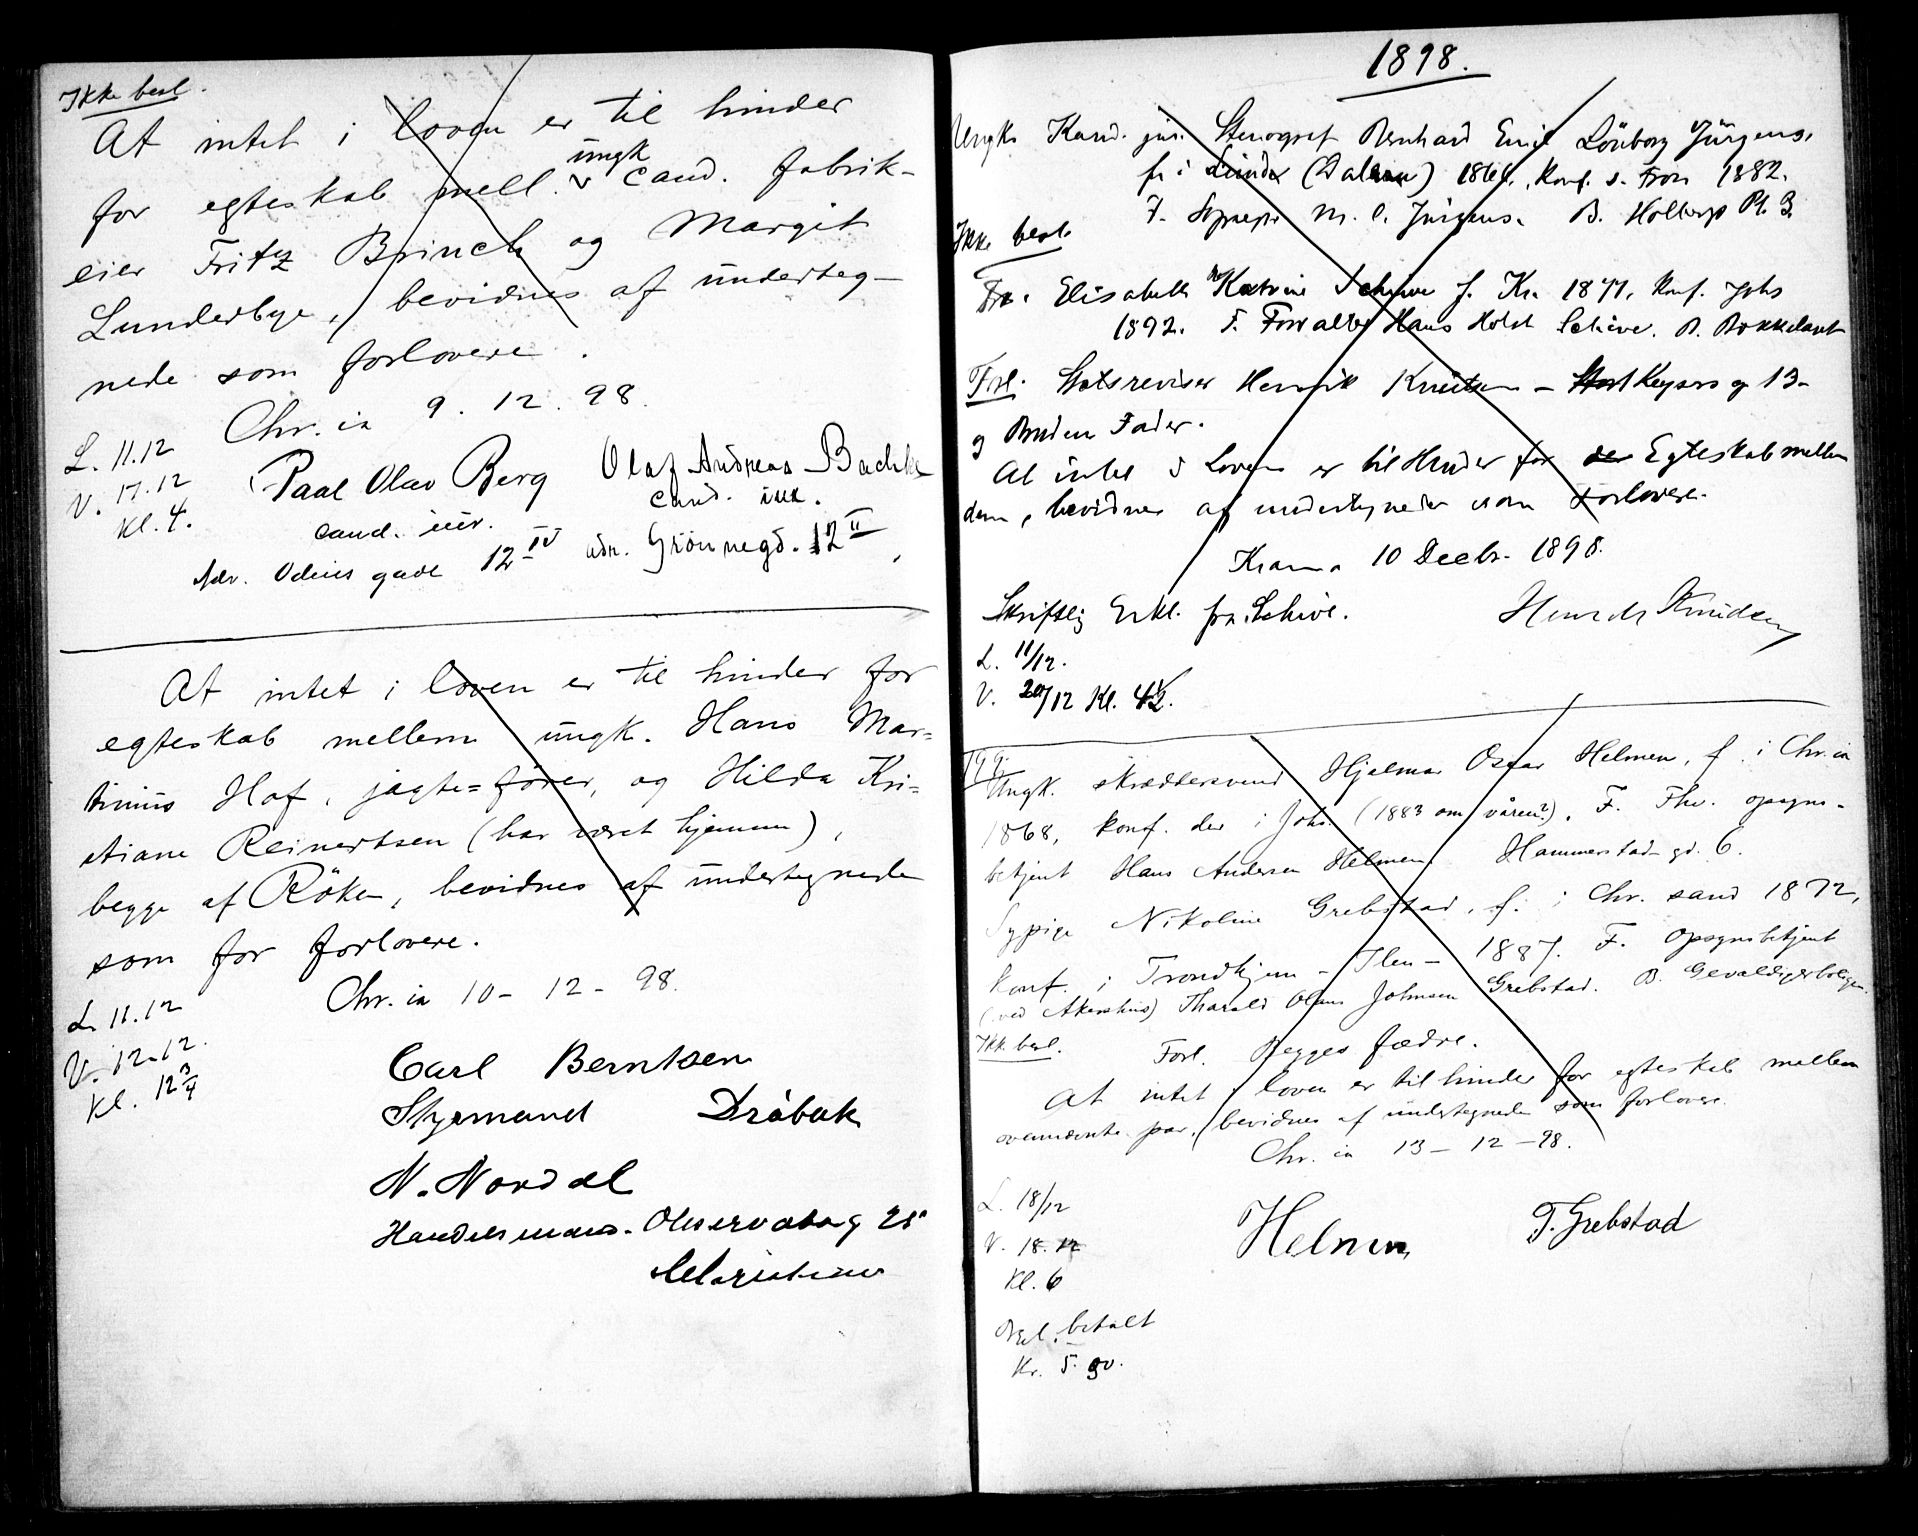 Ikke besl.
At intet i loven er til hinder
for egteskab mell. ungk. cand. fabrik-
eier Fritz Brinch og Margit
Lunderbye, bevidnes af underteg-
nede som forlovere.
Chr.ia 9.12.98.
L. 11.12
V. 17.12
Kl. 4.
Paal Olav Berg Olaf Andreas Bachke
cand. jur. cand. jur.
Adr. Odins gade 12 IV adr. Grönnegd. 12 II
At intet i loven er til hinder for
egteskab mellem ungk. Hans Mar=
tinius Hof, jagte=förer, og Hilda Kri=
stiane Reinertsen (har været hjemme),
begge af Röken, bevidnes af undertegnede
som for forlovere.
Chr.ia 10-12-98.
L. 11.12
V. 12.12.
Kl. 12 3/4
Carl Berntsen
Styrmand Dröbak
N. Nordal
Handelsmand. Observatorg 25
1898.
Ungk. Kand. jur. Stenograf Bernhard Emil Lönborg Jürgens,
f. i (Dalen) 1864, Konf. s. Fron 1882.
F. M. C. Jürgens. B. Holbergs Pl. 3.
Ikke besl.
Fr. Elisabeth Katrine Schive f. Kr. 1871, Konf. Johs
1892. F. Forvalter Hans Holst Schive. B. Bekkelaget
Forl. Statsrevisor Henrik Knudsen - Keysers g 13-
og Bruden Fader.
At intet i Loven er til Hinder for Egteskab mellem
dem, bevidnes af undertegnede som Forlovere.
Krania 10 Decbr. 1898.
Skriftlig Erkl. fra Schive. Henrik Knudsen
L. 11/12.
V. 20/12 Kl. 4½.
199.
Ungk. skræddersvend Hjalmar Oscar Helmen, f. i Chr.ia
1868, konf. der i Joh. (1883 om våren?). F. Fhv. opsyns-
betjent Hans Andersen Helmen. Hammerstads gd. 6.
Sypige Nikoline Grebstad, f. i Chr.sand 1872,
konf. i Trondhjem - Ilen - 1887. F. Opsynsbetjent
(ved Akershus) Tharald Olaus Johnsen Grebstad. B. Gevaldigerboligen.
Ikk. besl. Forl. Begges fædre.
At intet i loven er til hinder for egteskab mellem
ovennævnte par, bevidnes af undertegnede som forlovere.
Chr.ia 13-12-98.
L. 18/12
V. 18.12
Kl. 6
Helmen T. Grebstad
Orgel betalt
Kr. 5.90.